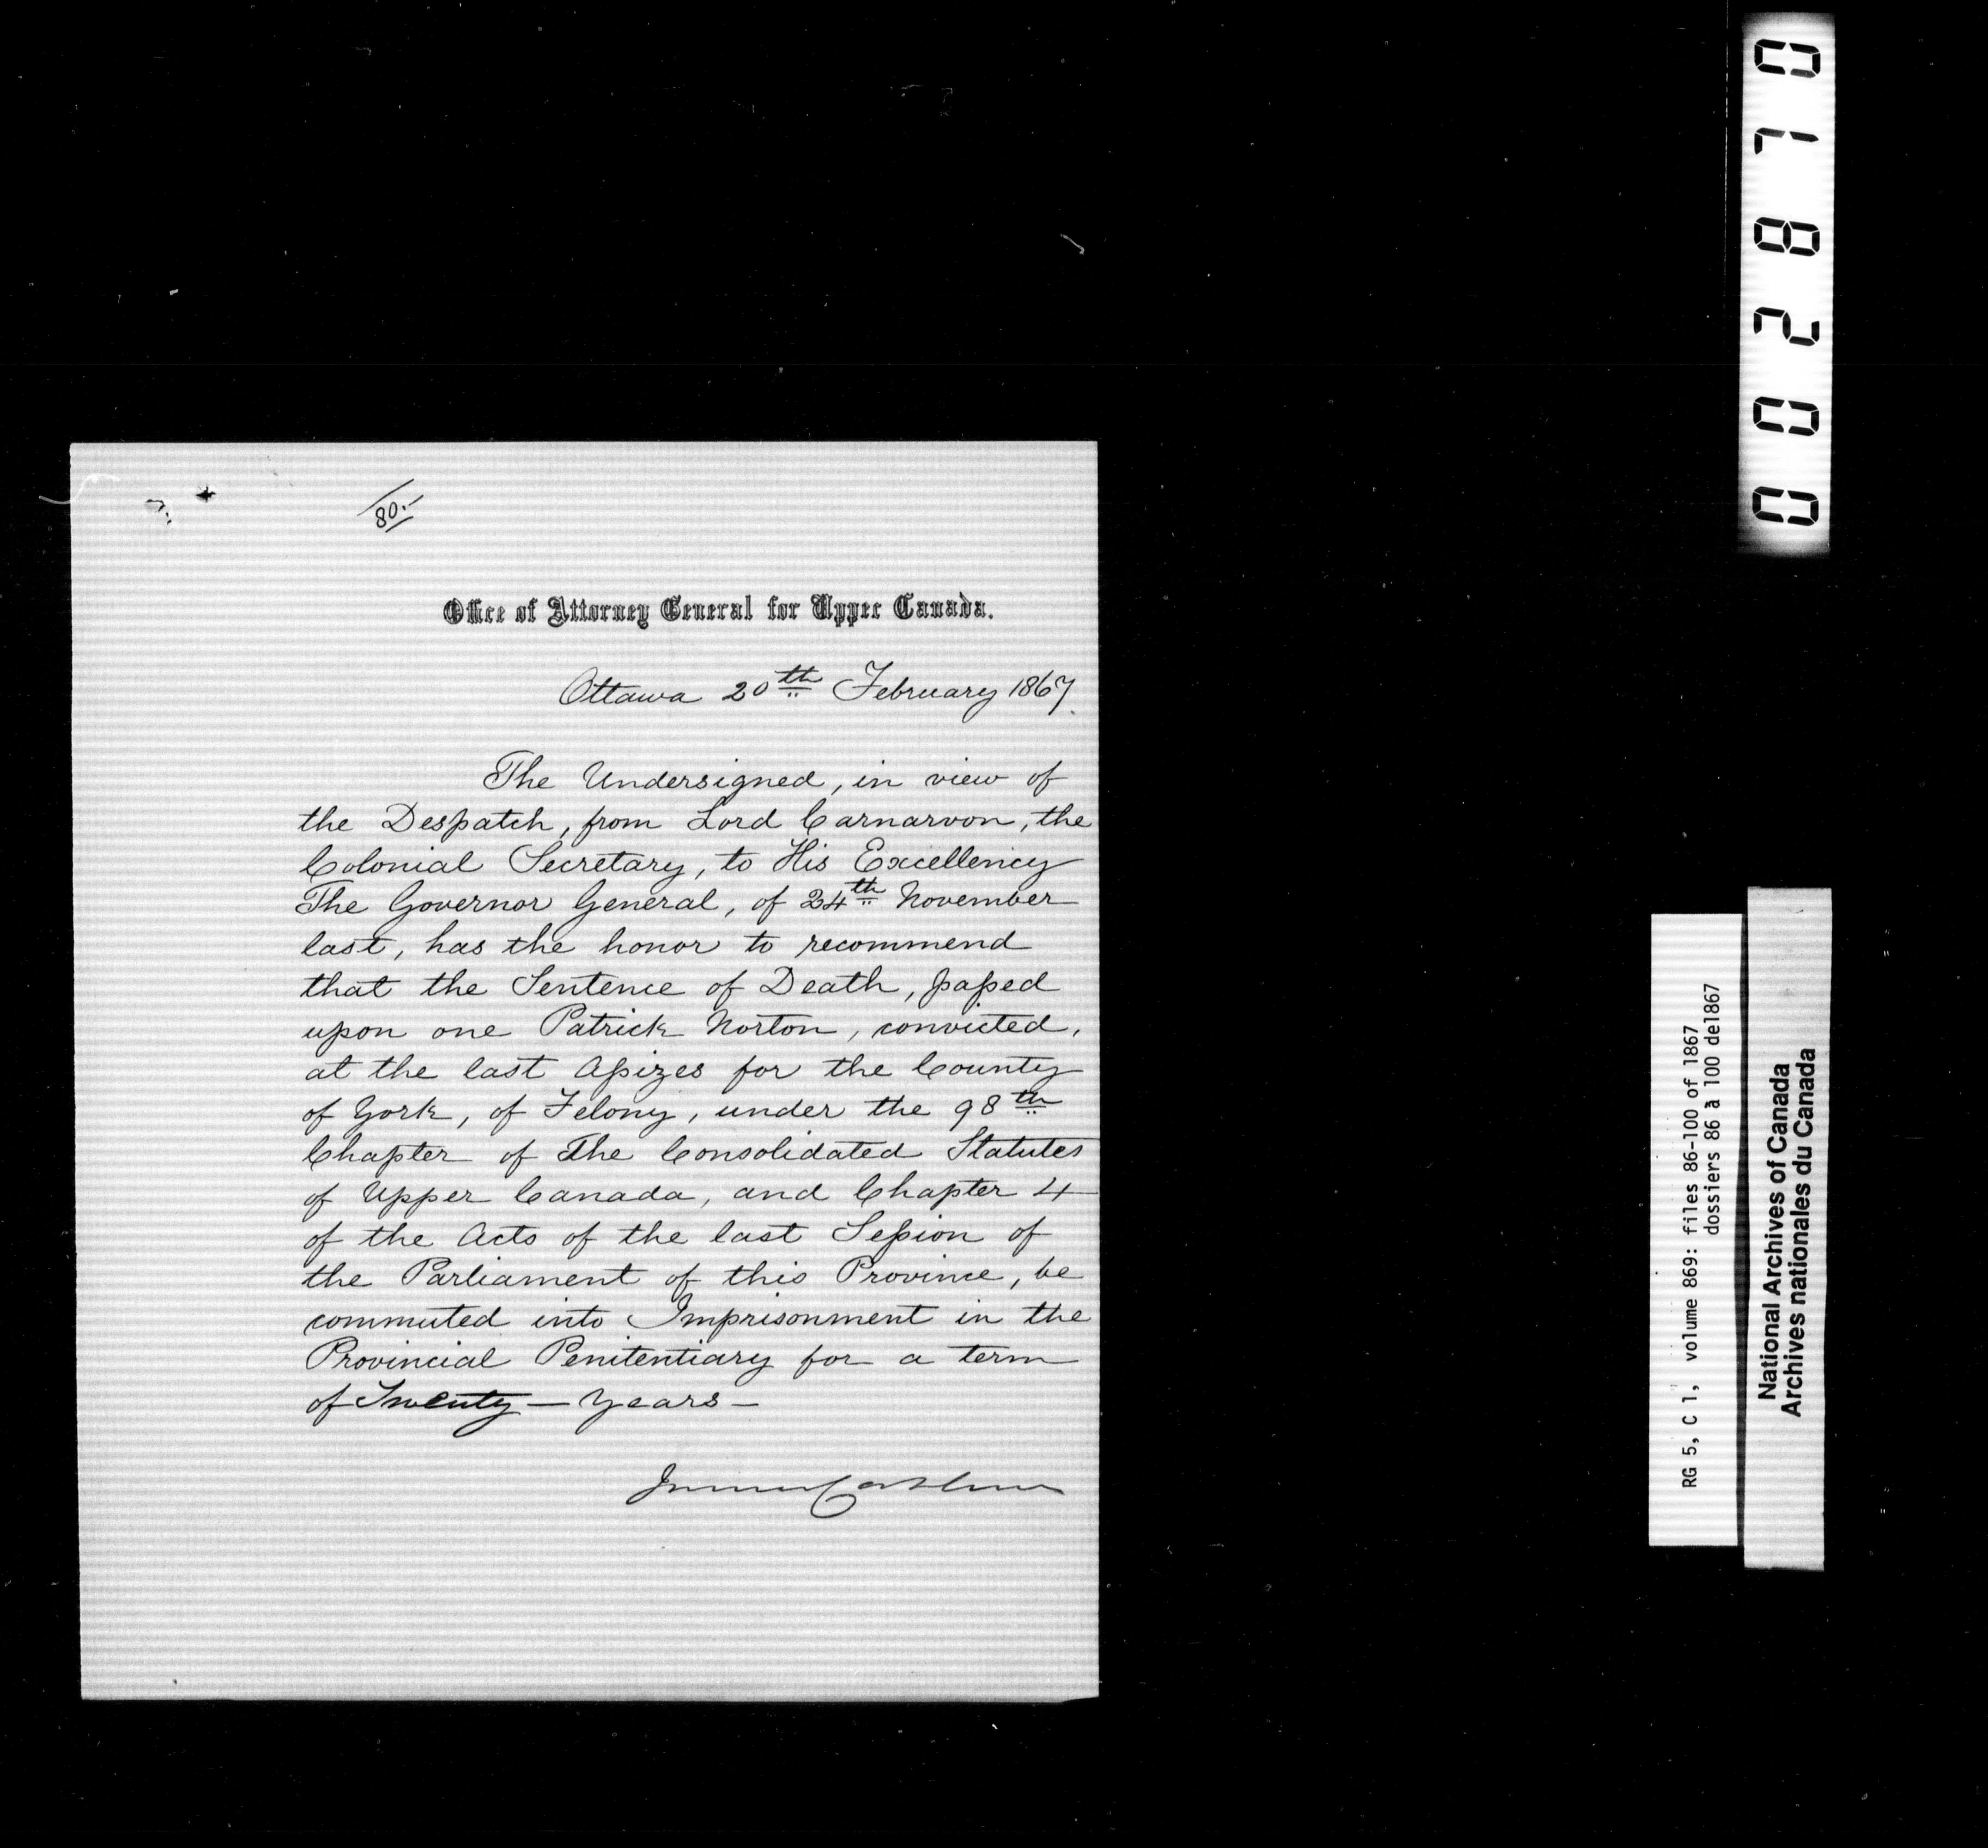 80.-
Office of Attorney General for Upper Canada.
Ottawa 20th February 1867.
The Undersigned, in view of
the Despatch, from Lord Carnarvon, the
Colonial Secretary, to His Excellency
The Governor General, of 24th November
last, has the honor to recommend
that the Sentence of Death, passed
upon one Patrick Norton, convicted,
at the last Assizes for the County
of York, of Felony, under the 98th
Chapter of The Consolidated Statutes
of Upper Canada, and Chapter 4
of the Acts of the last Session of
the Parliament of this Province, be
commuted into Imprisonment in the
Provincial Penitentiary for a term
of Twenty — Years —
002810
RG 5, C 1, volume 869: files 86-100 of 1867
dossiers 86 à 100 de1867
National Archives of Canada
Archives nationales du Canada